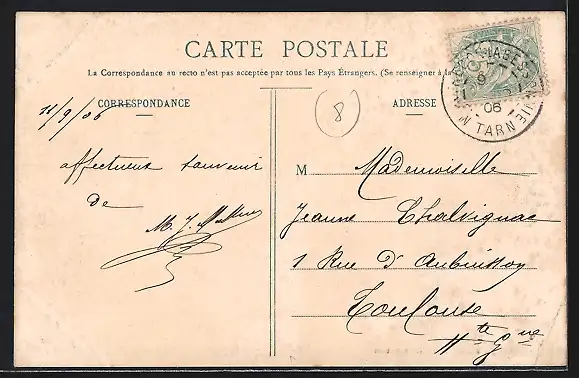 CARTE POSTALE
La Correspondance au recto n'est pas acceptée par tous les Pays Étrangers. (Se renseigner à la
CORRESPONDANCE
ADRESSE
11/9/06
8
affectueux souvenir
de
M. J.
M Mademoiselle
Jeanne Chalvignac
1 Rue d'Aubuisson
Toulouse
Hte Gne
06
TARN